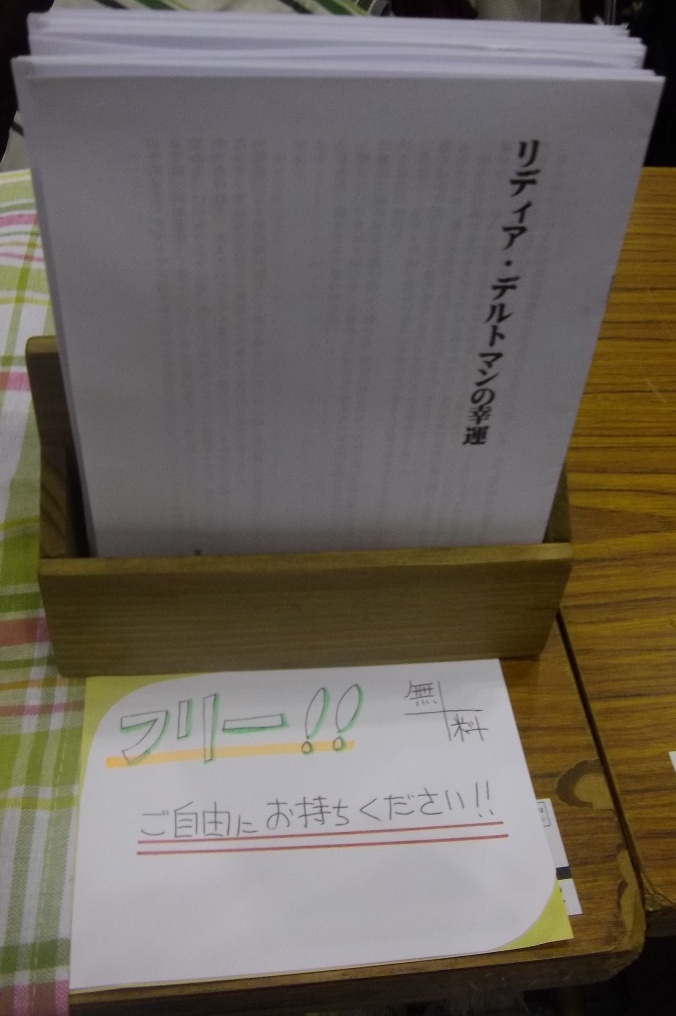 リディア・デルトマンの幸運
フリー!!
無料
ご自由にお持ちください!!